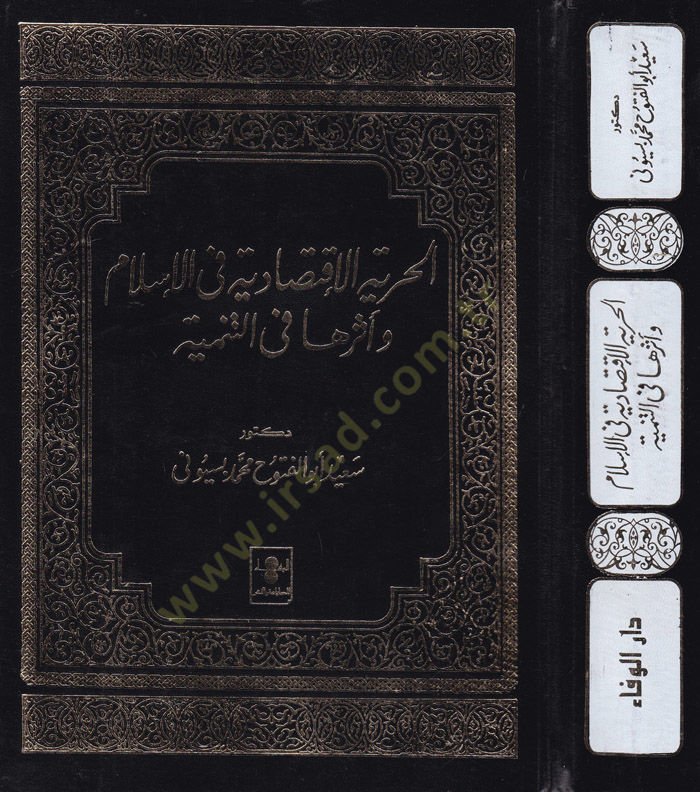 الحرية الاقتصادية فى الإسلام
وأثرها فى التنمية
دكتور
سعيد أبو الفتوح محمد بسيونى
الوفاء
www.irsad.com.tr
دكتور
سعيد أبو الفتوح محمد بسيونى
الحرية الاقتصادية فى الإسلام
وأثرها فى التنمية
دار الوفاء